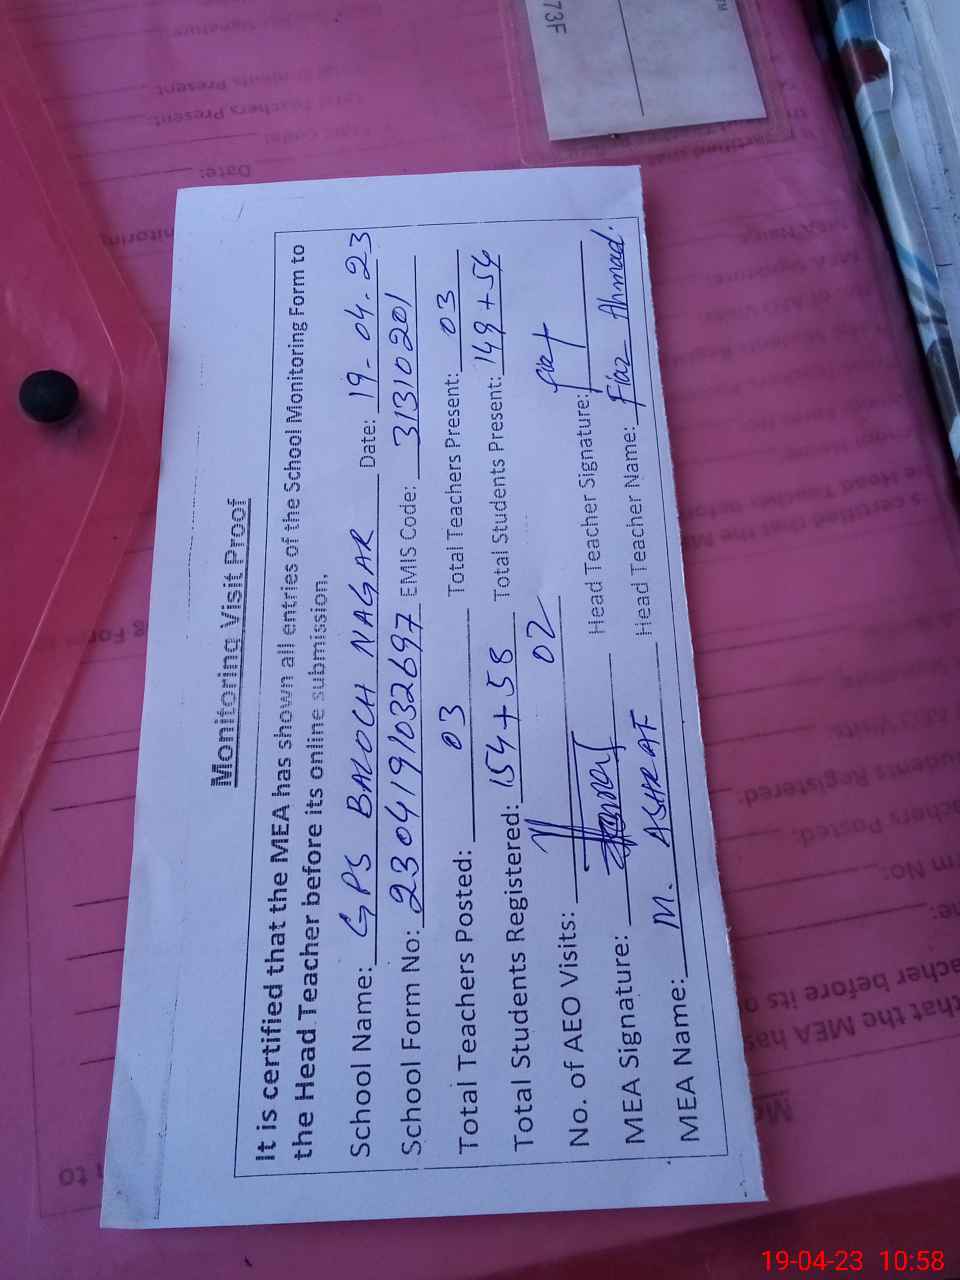 Monitoring Visit Proof
It is certified that the MEA has shown all entries of the School Monitoring Form to
the Head Teacher before its online submission.
School Name: GPS BALOCH NAGAR Date: 19-04.23
School Form No: 2304191032697 EMIS Code: 31310201
Total Teachers Posted: 03 Total Teachers Present: 03
Total Students Registered: 154+58 Total Students Present: 149+54
No. of AEO Visits: 02 Head Teacher Signature:
MEA Signature: Head Teacher Name: Fiaz Ahmad.
MEA Name: M. ASHRAF
73F
19-04-23 10:58